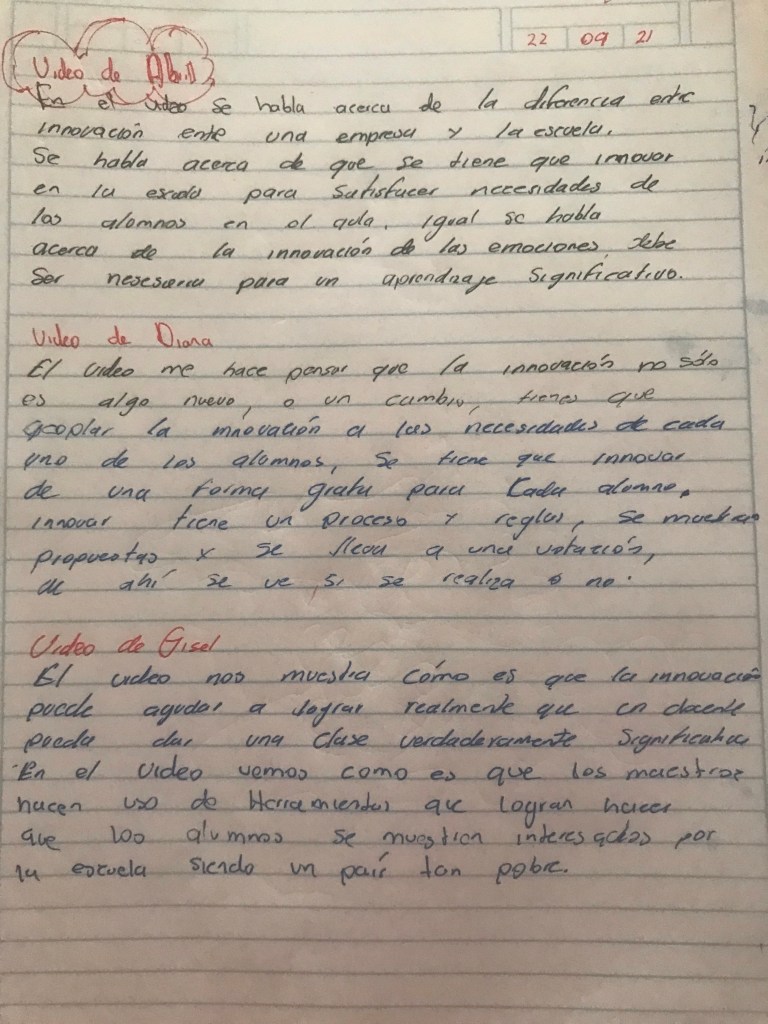 22 09 21
Video de Abril
En el video se habla acerca de la diferencia entre
innovación ente una empresa y la escuela.
Se habla acerca de que se tiene que innovar
en la escuela para satisfacer necesidades de
los alumnos en el aula. igual se habla
acerca de la innovación de las emociones, debe
ser nesesaria para un aprendizaje significativo.
Video de Diana
El video me hace pensar que la innovación no sólo
es algo nuevo, o un cambio, tienes que
acoplar la innovación a las necesidades de cada
uno de los alumnos, se tiene que innovar
de una forma grata para cada alumno,
innovar tiene un proceso y reglas, se
propuestas y se lleva a una votación,
de ahí se ve si se realiza o no.
Video de Gisel
El video nos muestra cómo es que la innovación
puede ayudar a lograr realmente que un docente
pueda dar una clase verdaderamente significativa
En el video vemos como es que los maestros
hacen uso de Herramientas que logran hacer
que los alumnos se muestren interesados por
la escuela siendo un país tan pobre.